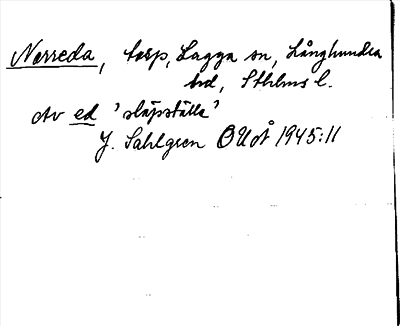 Norreda, torp, Lagga sn, Långhundra
hd, Sthlms l.
Av ed 'släpställe'
J. Sahlgren OUoÅ 1945:11